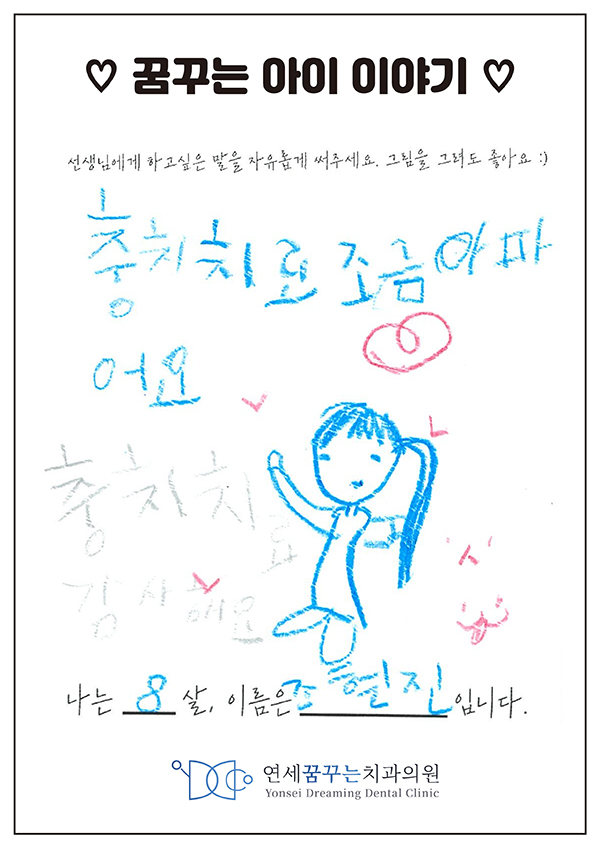 ♡ 꿈꾸는 아이 이야기 ♡
선생님에게 하고싶은 말을 자유롭게 써주세요. 그림을 그려도 좋아요 :)
충치치료 조금아파
어요
충치치료
감사해요
나는 8 살, 이름은 조현진 입니다.
연세꿈꾸는치과의원
Yonsei Dreaming Dental Clinic